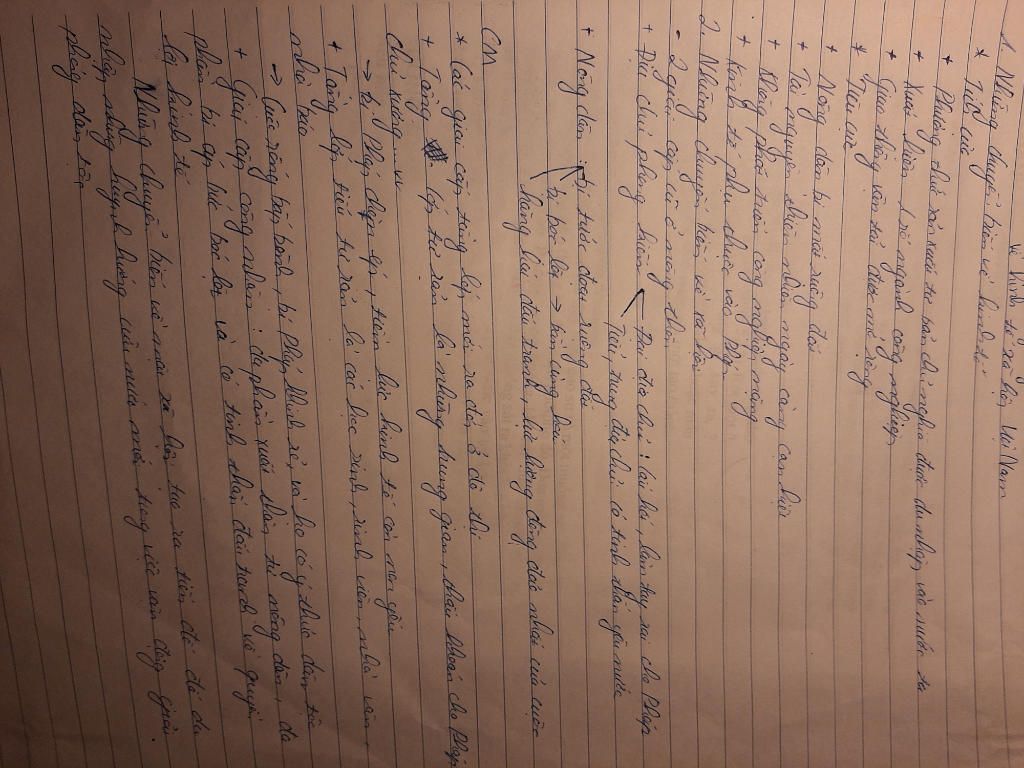 tế xã hội Việt Nam
1. Những chuyển biến về kinh tế
* Tích cực
+ Phương thức sản xuất tư bản chủ nghĩa được du nhập vào nước ta
+ Xuất hiện 1 số ngành công nghiệp
+ Giao thông vận tải được mở mang
* Tiêu cực
+ Nông dân bị mất ruộng đất
+ Tài nguyên thiên nhiên ngày càng cạn kiệt
+ Không phát triển công nghiệp nặng
+ Kinh tế phụ thuộc vào Pháp
2. Những chuyển biến về xã hội
- 2 giai cấp cũ ở nông thôn
+ Địa chủ phong kiến Đại địa chủ: câu kết, làm tay sai cho Pháp
Tiểu, trung địa chủ có tinh thần yêu nước
+ Nông dân bị tước đoạt ruộng đất
bị bóc lột → bần cùng hóa
hăng hái đấu tranh, lực lượng đông đảo nhất của cuộc
CM
* Các giai cấp tầng lớp mới ra đời ở đô thị
+ Tầng lớp tư sản là những trung gian, thầu khoán cho Pháp,
chủ xưởng...
→ bị Pháp chèn ép, tiềm lực kinh tế còn non yếu
+ Tầng lớp tiểu tư sản là các học sinh, sinh viên, nhà văn,
nhà báo
→ Cuộc sống bấp bênh, bị Pháp khinh rẻ, họ có ý thức dân tộc
+ Giai cấp công nhân: đa phần xuất thân từ nông dân, đa
phần bị áp bức bóc lột và có tinh thần đấu tranh vì quyền
lợi kinh tế
Những chuyển biến về mặt xã hội tạo ra tiền đề để du
nhập những khuynh hướng cứu nước mới trong việc vận động giải
phóng dân tộc